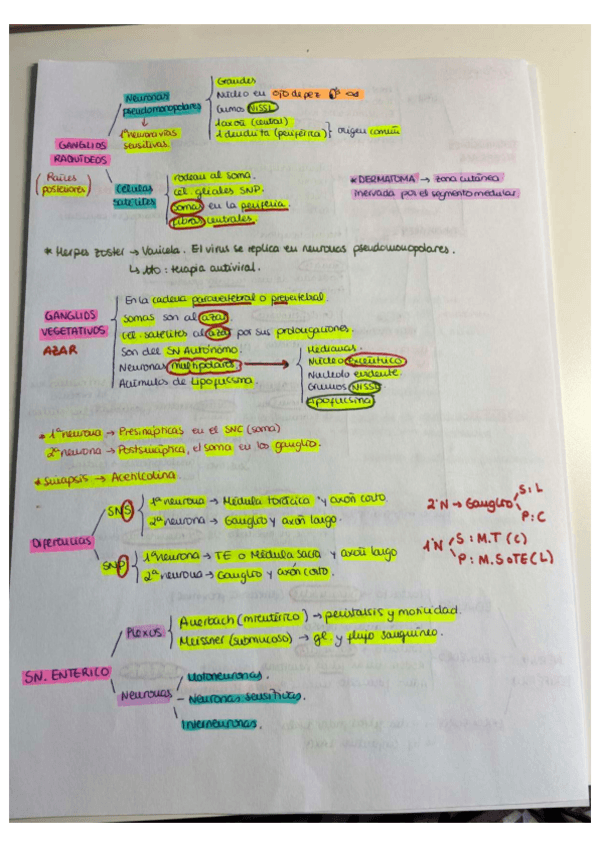 Grandes
Neuronas pseudomonopolares
Núcleo en ojo de pez
Grumos NISSL
1 axón (central)
1 dendrita (periférica) } origen común
1ª neurona vías sensitivas.
GANGLIOS RAQUÍDEOS
(Raíces posteriores)
Células satélites
rodean al soma.
cél. gliales SNP.
Somas en la periferia.
Fibras centrales.
* DERMATOMA → zona cutánea
inervada por el segmento medular
* Herpes zoster → Varicela. El virus se replica en neuronas pseudomonopolares.
↳ tto: terapia antiviral.
GANGLIOS VEGETATIVOS
AZAR
En la cadena paravertebral o prevertebral.
Somas son al azar.
Cél. satélites al azar por sus prolongaciones.
Son del SN Autónomo.
Neuronas multipolares →
Acúmulos de lipofucsina.
Medianas.
Núcleo excéntrico
Nucleolo evidente.
Grumos NISSL
Lipofucsina
* 1ª neurona → Presinápticas en el SNC (soma)
2ª neurona → Postsináptica, el soma en los ganglio.
* Sinapsis → Acetilcolina.
Diferencias
SNS
1ª neurona → Médula torácica y axón corto.
2ª neurona → Ganglio y axón largo.
SNP
1ª neurona → TE o Médula sacra y axón largo
2ª neurona → Ganglio y axón corto.
2ª N → Ganglio
S: L
P: C
1ª N
S: M.T (C)
P: M.S o TE (L)
SN. ENTERICO
Plexos
Auerbach (mientérico) → peristalsis y motilidad.
Meissner (submucoso) → gl. y flujo sanguíneo.
Neuronas
Motoneuronas.
Neuronas sensitivas.
Interneuronas.